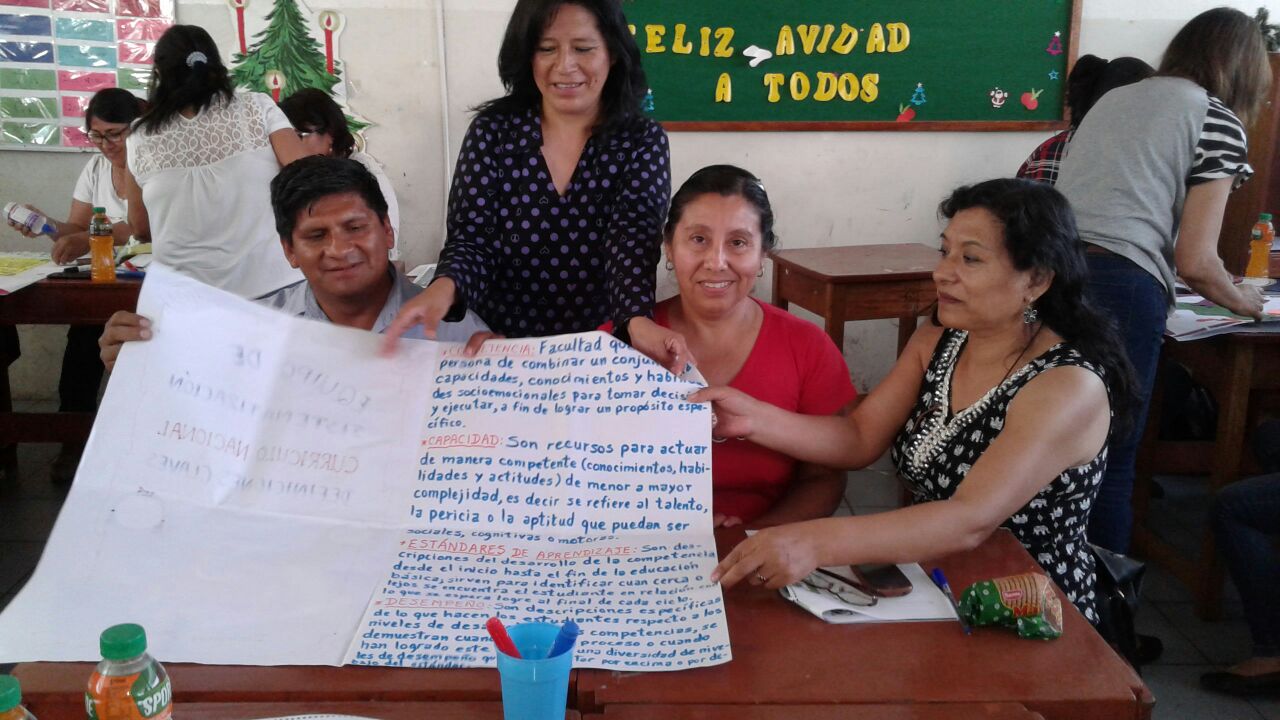 FELIZ AVIDAD
A TODOS
COMPETENCIA: Facultad
persona de combinar un
capacidades, conocimientos y
des socioemocionales para tomar
y ejecutar, a fin de lograr un propósito espe-
cífico.
*CAPACIDAD: Son recursos para actuar
de manera competente (conocimientos, habi-
lidades y actitudes) de menor a mayor
complejidad, es decir se refiere al talento,
la pericia o la aptitud que puedan ser
sociales, cognitivas o motoras.
*ESTÁNDARES DE APRENDIZAJE: Son des-
cripciones del desarrollo de la competencia
desde el inicio hasta el fin de la educación
básica, sirven para identificar cuan cerca o
lejos se encuentra el estudiante en relación con
lo que se espera logre al final de cada ciclo.
*DESEMPEÑO: Son descripciones específicas
de lo que hacen los estudiantes respecto a los
niveles de competencias, se
demuestran proceso o cuando
han logrado este una diversidad de nive-
les de desempeño por encima o por de-
bajo del estándar
EQUIPO DE
SISTEMATIZACIÓN
CURRICULO NACIONAL
DEFINICIONES CLAVES
SPOR